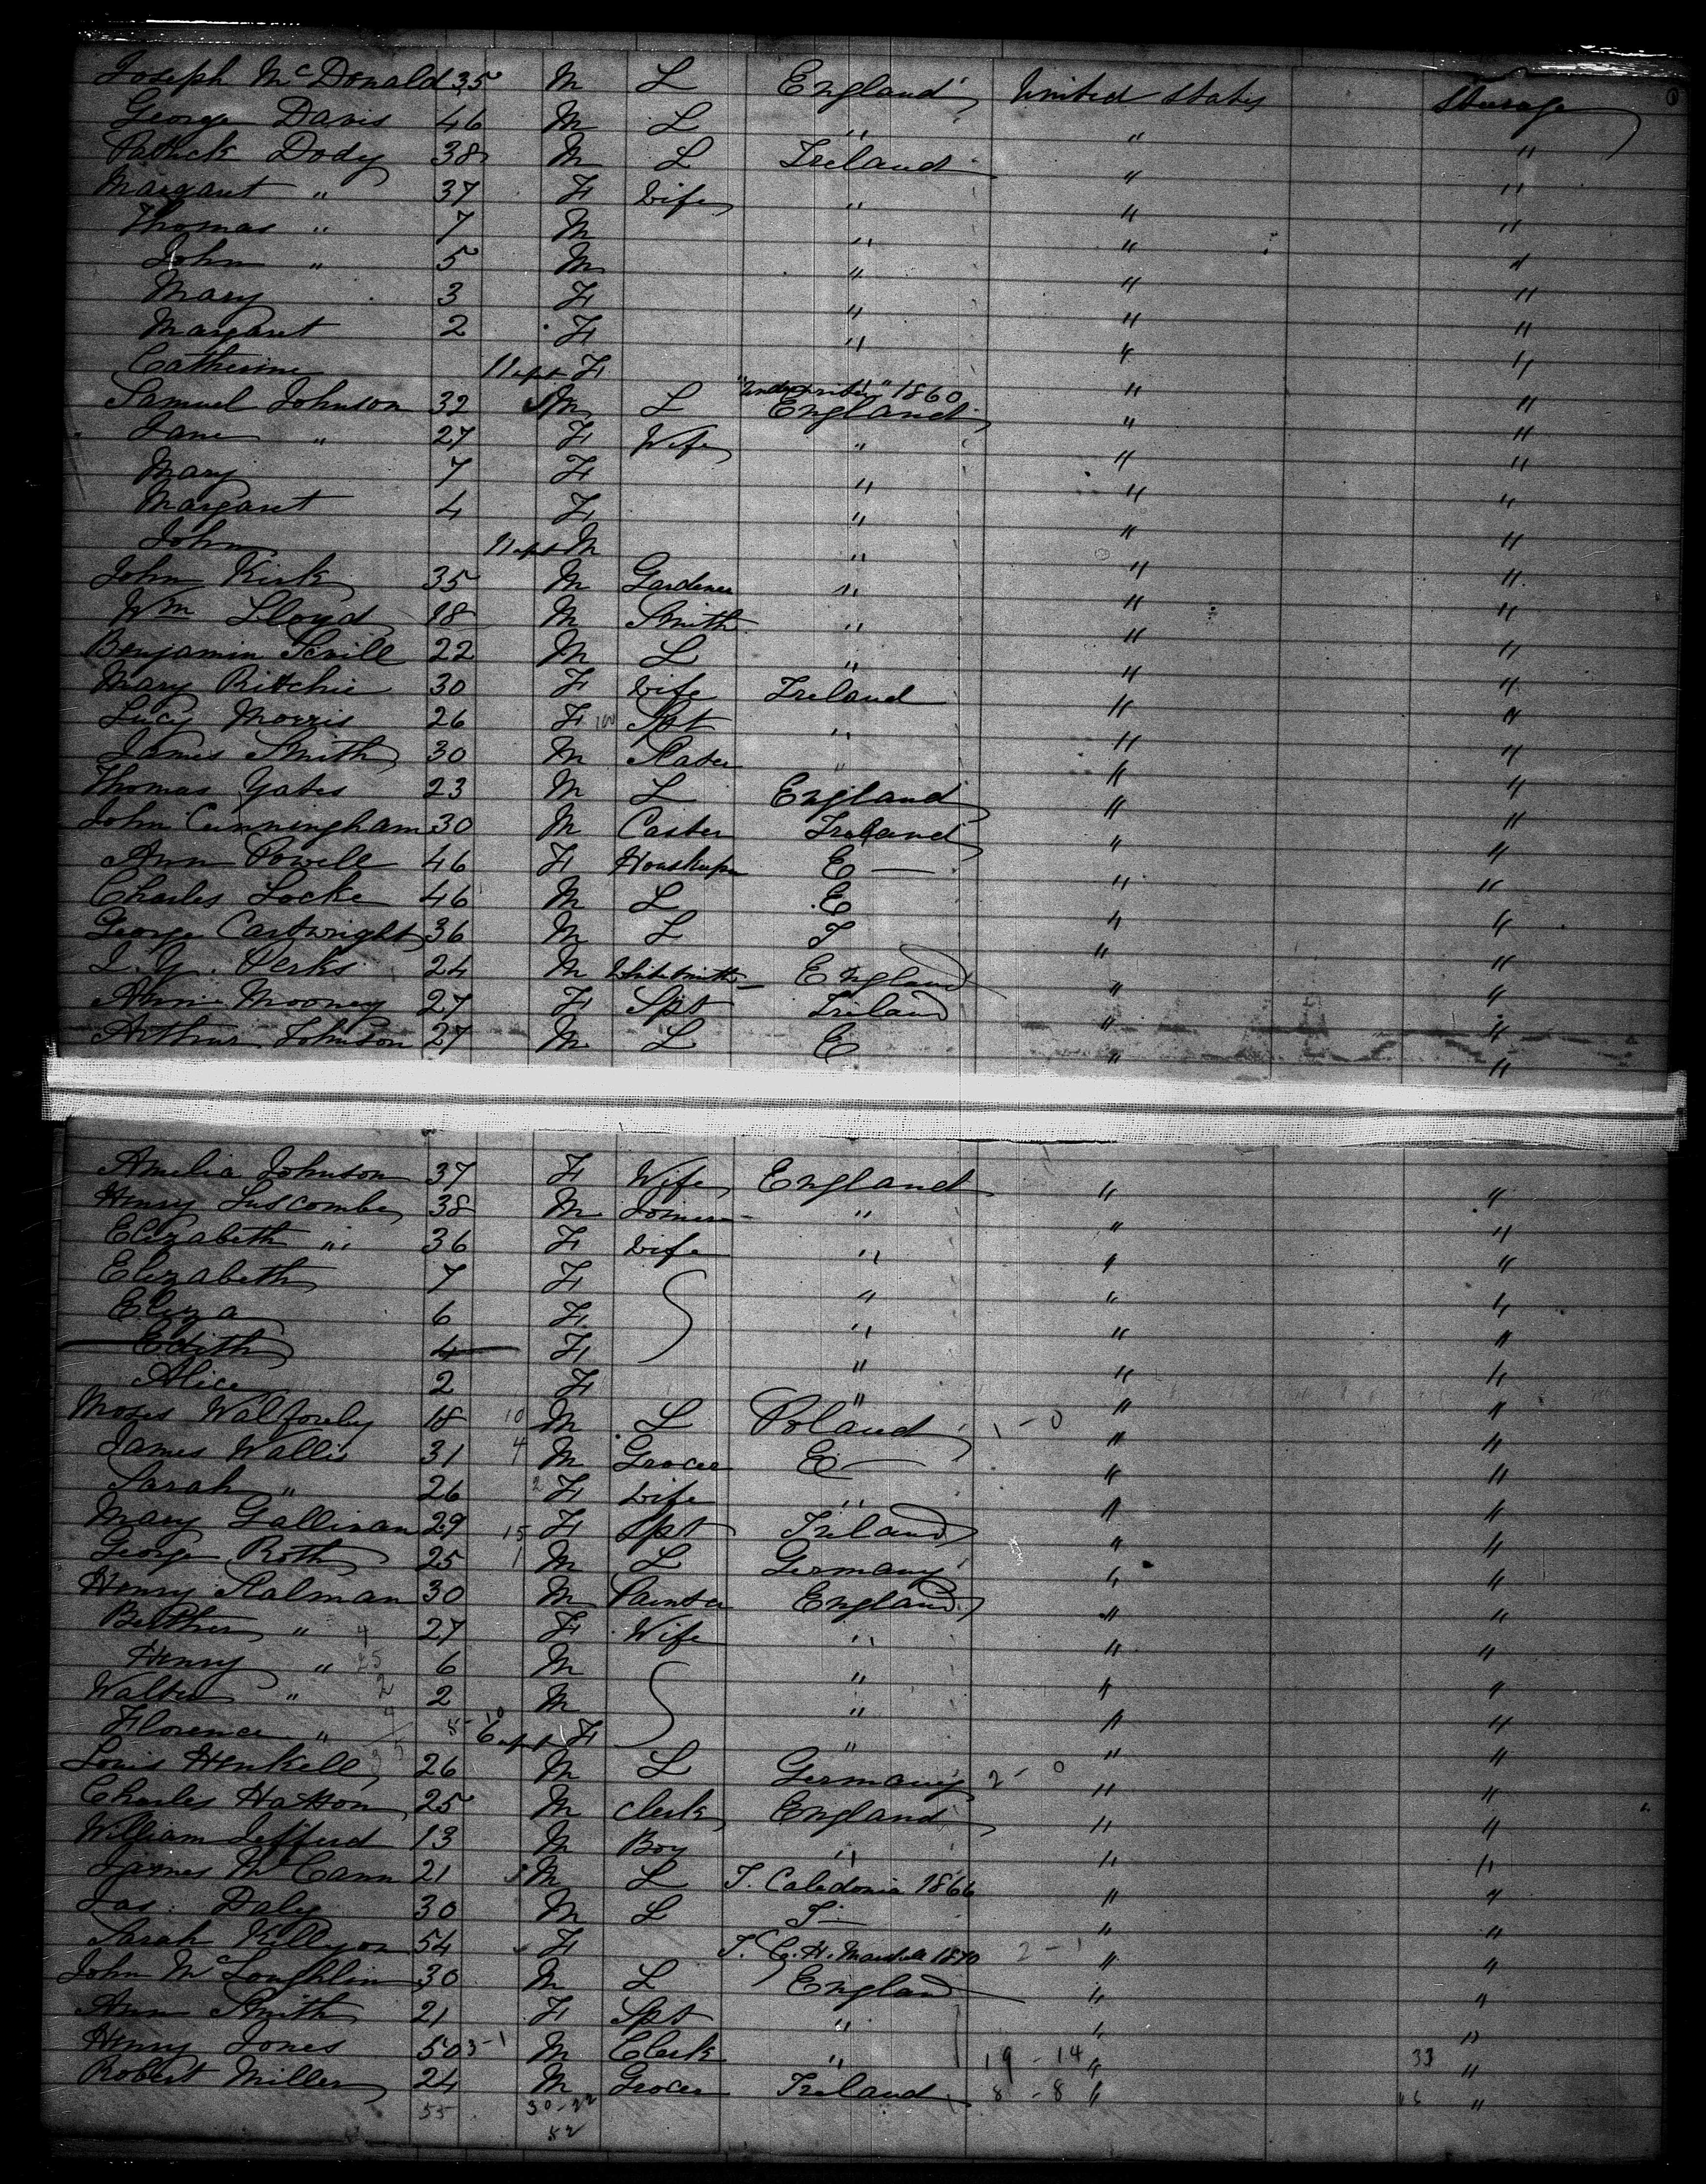 Joseph McDonald 35 M L England United States Steerage
George Davis 46 M L " " "
Patrick Dody 38 M L Ireland " "
Margaret " 37 F Wife " " "
Thomas " 7 M " " "
John " 5 M " " "
Mary 3 F " " "
Margaret 2 F " " "
Catherine 11 F " " "
Samuel Johnson 32 M L "Underwriter" 1860 England " "
Jane " 27 F Wife " " "
Mary 7 F " " "
Margaret 4 F " " "
John 11 M " " "
John Kirk 35 M Gardener " " "
Wm Lloyd 18 M Smith " " "
Benjamin 22 M L " " "
Mary Ritchie 30 F Wife Ireland " "
Lucy Morris 26 F Spt " " "
James Smith 30 M Slater " " "
Thomas Yates 23 M L England " "
John Cunningham 30 M Carter Ireland " "
Ann Powell 46 F Housekeeper E — " "
Charles Locke 46 M L E " "
George Cartwright 36 M L I " "
24 M Whitesmith England " "
Annie Mooney 27 F Spt Ireland " "
Arthur Johnson 27 M L E " "
Amelia Johnson 37 F Wife England " "
Henry Luscombe 38 M Joiner " " "
Elizabeth " 36 F Wife " " "
Elizabeth 7 F " " "
Eliza 6 F " " "
Edith 4 F " " "
Alice 2 F " " "
Moses 18 10 M L Poland 1 - 0 " "
James Wallis 31 4 M Grocer E — " "
Sarah " 26 2 F Wife " " "
Mary Gallivan 29 15 F Spt Ireland " "
George Roth 25 1 M L Germany " "
Henry Salman 30 M Painter England " "
" 27 F Wife " " "
Henry " 6 M " " "
Walter " 2 M " " "
Florence " 6 F " " "
Louis Henkell 26 M L Germany 2 - 0 " "
Charles Hatton 25 M Clerk England " "
William Jefferd 13 M Boy " " "
James McCann 21 M L I. Caledonia 1866 " "
Jas. Daly 30 M L I — " "
Sarah Killyon 54 F I. C. H. Marshall 1870 2 - 1 " "
John McLoughlin 30 M L England " "
Ann Smith 21 F Spt " " "
Henry Jones 50 3-1 M Clerk " 19 - 14 " 33 "
Robert Miller 24 M Grocer Ireland 8 - 8 " "
55 30-22
52